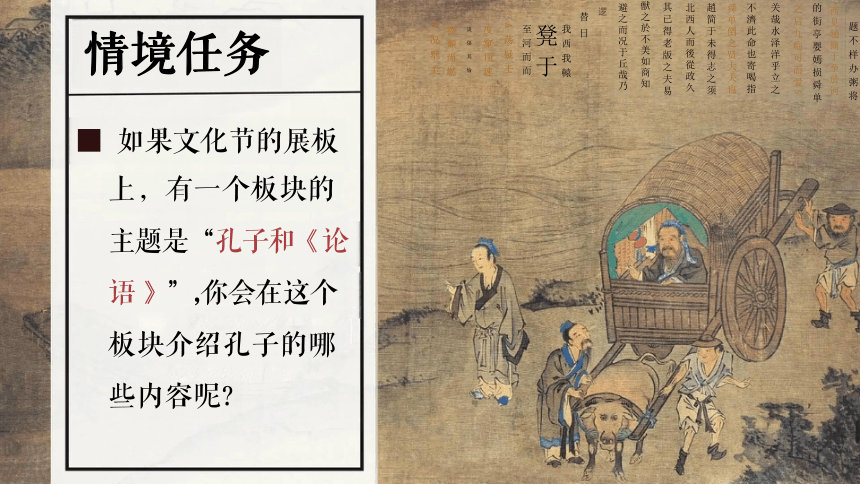 情境任务
■ 如果文化节的展板
上，有一个板块的
主题是“孔子和《论
语》”,你会在这个
板块介绍孔子的哪
些内容呢?
题不样办粥将
的街亭要嫣损舜单
关哉水泽洋乎立之
不濟此命也寄喝指
越简于未得志之须
北西人而後從政久
其已得老版之夫易
獣之於不美如商知
避之而况于丘哉乃
逻
昔日
我西我贑
凳于
至河而而